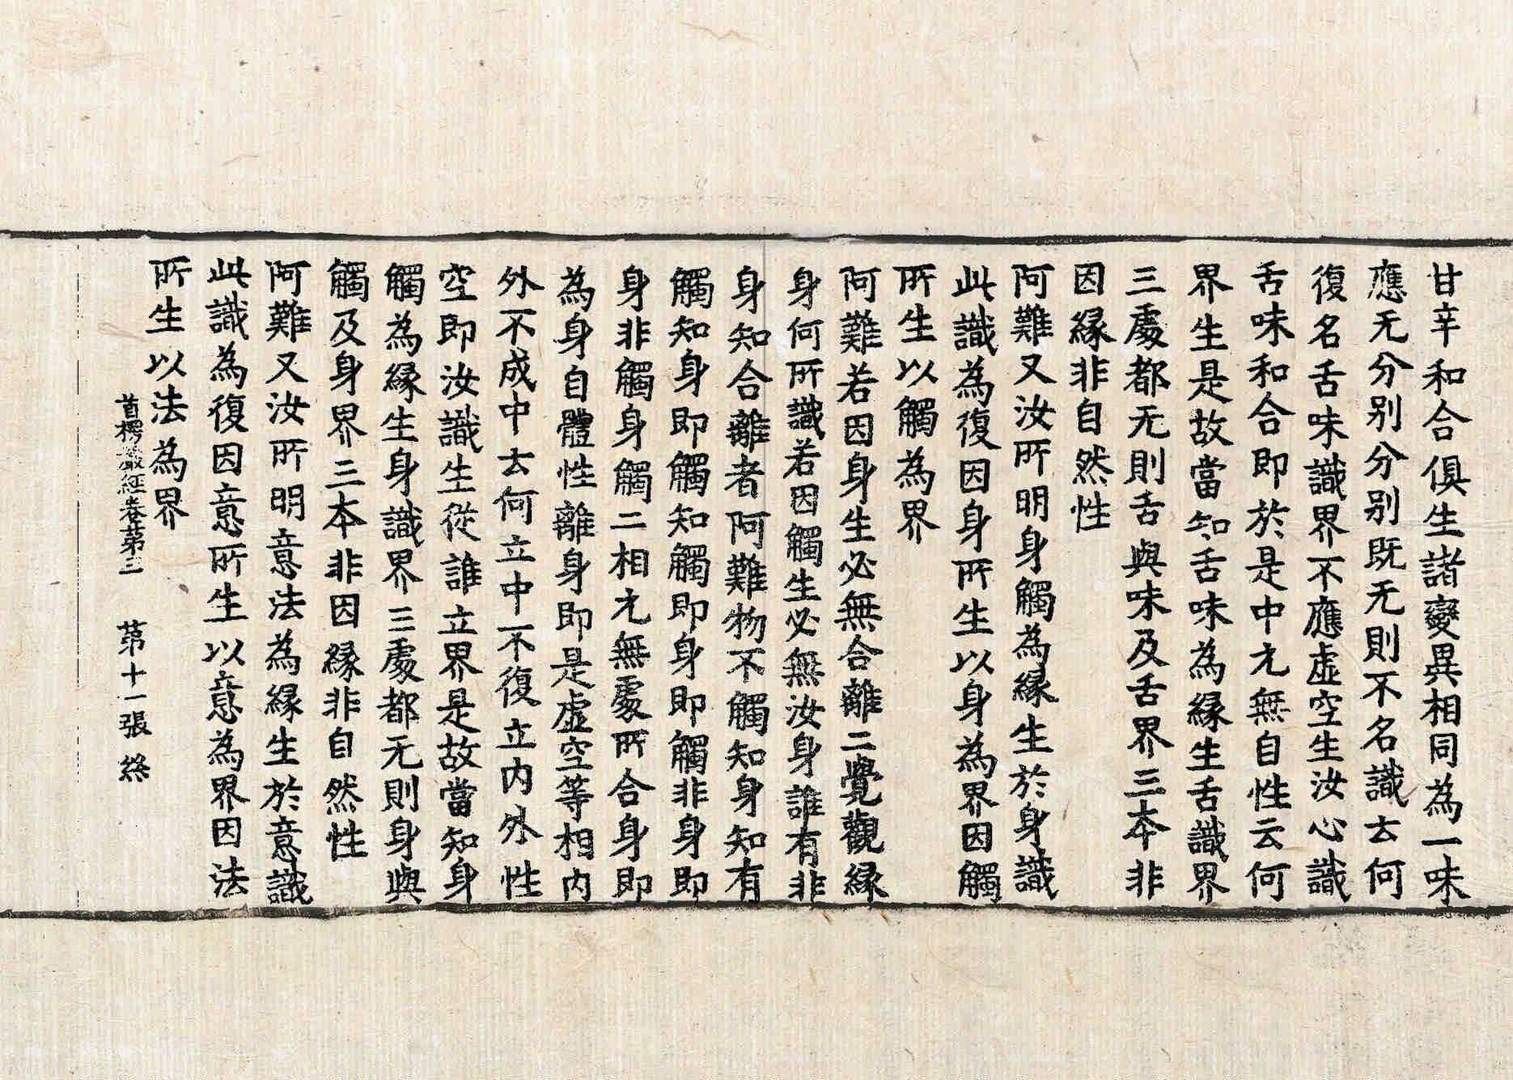 甘辛和合俱生諸變異相同為一味
應无分别分别既无則不名識去何
復名舌味識界不應虛空生汝心識
舌味和合即於是中元無自性云何
界生是故當知舌味為緣生舌識界
三處都无則舌與味及舌界三本非
因緣非自然性
阿難又汝所明身觸為緣生於身識
此識為復因身所生以身為界因觸
所生以觸為界
阿難若因身生必無合離二覺觀緣
身何所識若因觸生必無汝身誰有非
身知合離者阿難物不觸知身知有
觸知身即觸知觸即身即觸非身即
身非觸身觸二相元無處所合身即
為身自體性離身即是虛空等相內
外不成中去何立中不復立内外性
空即汝識生從誰立界是故當知身
觸為緣生身識界三處都无則身與
觸及身界三本非因緣非自然性
阿難又汝所明意法為緣生於意識
此識為復因意所生以意為界因法
所生以法為界
首楞嚴經卷第三 第十一張 絲